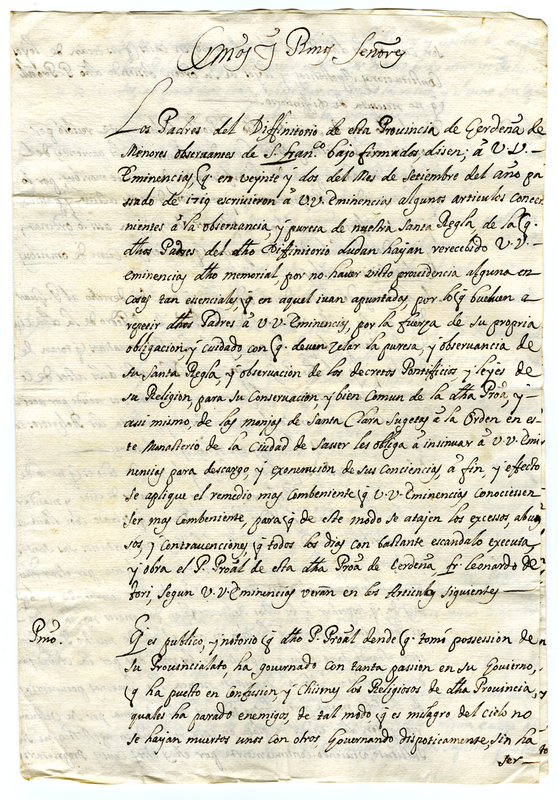 Emos y Rmos Señores
Los Padres del Diffinitorio de esta Provincia de Cerdeña de
Menores observantes de S. Franco. bajo firmados disen; â VV.
Eminencias, q. en veynte y dos del Mes de Setiembre del año pa
ssado de 1719 escrivieron â VV Eminencias algunos articules
nientes â la observancia y puresa de nuestra Santa Regla de la q.
dhos Padres del dho Diffinitorio dudan hayan rerecebido V.V.
Eminencias dho memorial, por no haver visto providencia alguna en
cosas tan esenciales, q en aquel ivan apuntadas, por lo q buelven a
repetir dhos Padres â V.V. Eminencias, por la fuerza de su propria
obligacion y cuidado, con q. deven zelar la puresa, y observancia de
su Santa Regla, y observacion de los decretos Pontificios y leyes de
su Religion, para su Conservacion, y bien Comun de la dha Proa, y
assi mismo, de las monjas de Santa Clara sugetas â la Orden en es
te Monasterio de la Ciudad de Sasser les obliga â insinuar â V.V. Emi
nencias para descargo, y exoneracion de sus Conciencias, â fin, y effecto
se aplique el remedio mas Combeniente q V.V. Eminencias Conociessen
ser mas Combeniente, para q de este modo se atajen los excessos, abu
sos, y Contravenciones q todos los dias con bastante escandalo executa
y obra el P. Proâl de esta dha Proa de Cerdeña, fr. Leonardo de
Sori, segun V.V. Eminencias veran en los Articulos siguientes
Pmo. Q es publico, y notorio q dho P. Proal dende q. tomó possession de
su Provincialato ha governado con tanta passion en su Govierno,
q ha puesto en Confusion, y Chismes los Religiosos de dha Provincia,
quales ha parado enemigos, de tal modo q es milagro del cielo no
se hayan muertos unos con otros, Governando dispoticamente, sin ha
ser